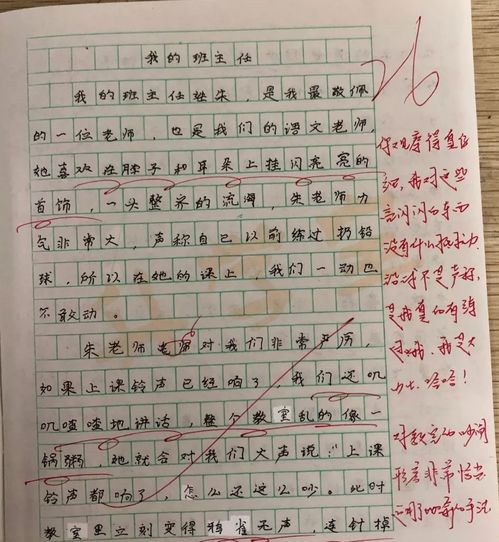 我的班主任
我的班主任姓朱，是我最敬佩
的一位老师，也是我们的语文老师，
她喜欢在脖子和耳朵上挂闪亮亮的
首饰，一头整齐的流海，朱老师力
气非常大，声称自己以前练过扔铅
球，所以在她的课上，我们一动也
不敢动。
朱老师老师对我们非常严厉，
如果上课铃声已经响了，我们还叽
叽喳喳地讲话，整个教室乱的像一
锅粥，她就会对我们大声说："上课
铃声都响了，怎么还这么吵。此时
教室里立刻变得鸦雀无声，连针掉
26
你观察得真仔
言闪闪的东西
没有什么抵抗力
是我真的有练
过哦，我是大
力士，哈哈！
对教室的吵闹
形容非常恰当